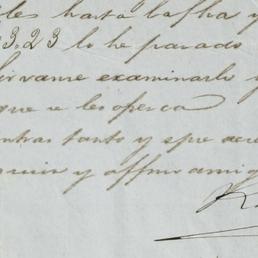 les hasta la fha y
3.23 lo he pasado
Sirvanse examinarlo y
que se les ofrezca
ntras tanto y que
y affmo amig